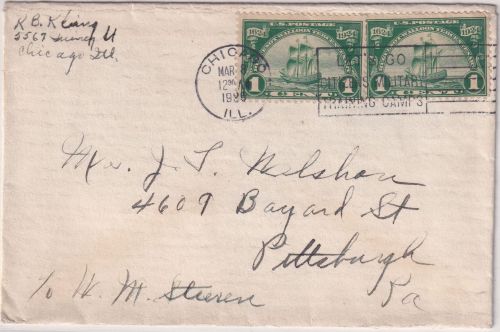 R B. Kling
5567 U
Chicago Ill.
1624 U.S. POSTAGE 1924
HUGUENOT-WALLOON TERCENTENARY
1 CENT 1
1624 U.S. POSTAGE 1924
HUGUENOT-WALLOON TERCENTENARY
1 CENT 1
CHICAGO
MAR
12
192
ILL.
GO
CITIZENS MILITARY
TRAINING CAMPS
Mr. J. T. Wilshaw
4609 Bayard St
Pittsburgh
Pa
℅ W. M. Stieren